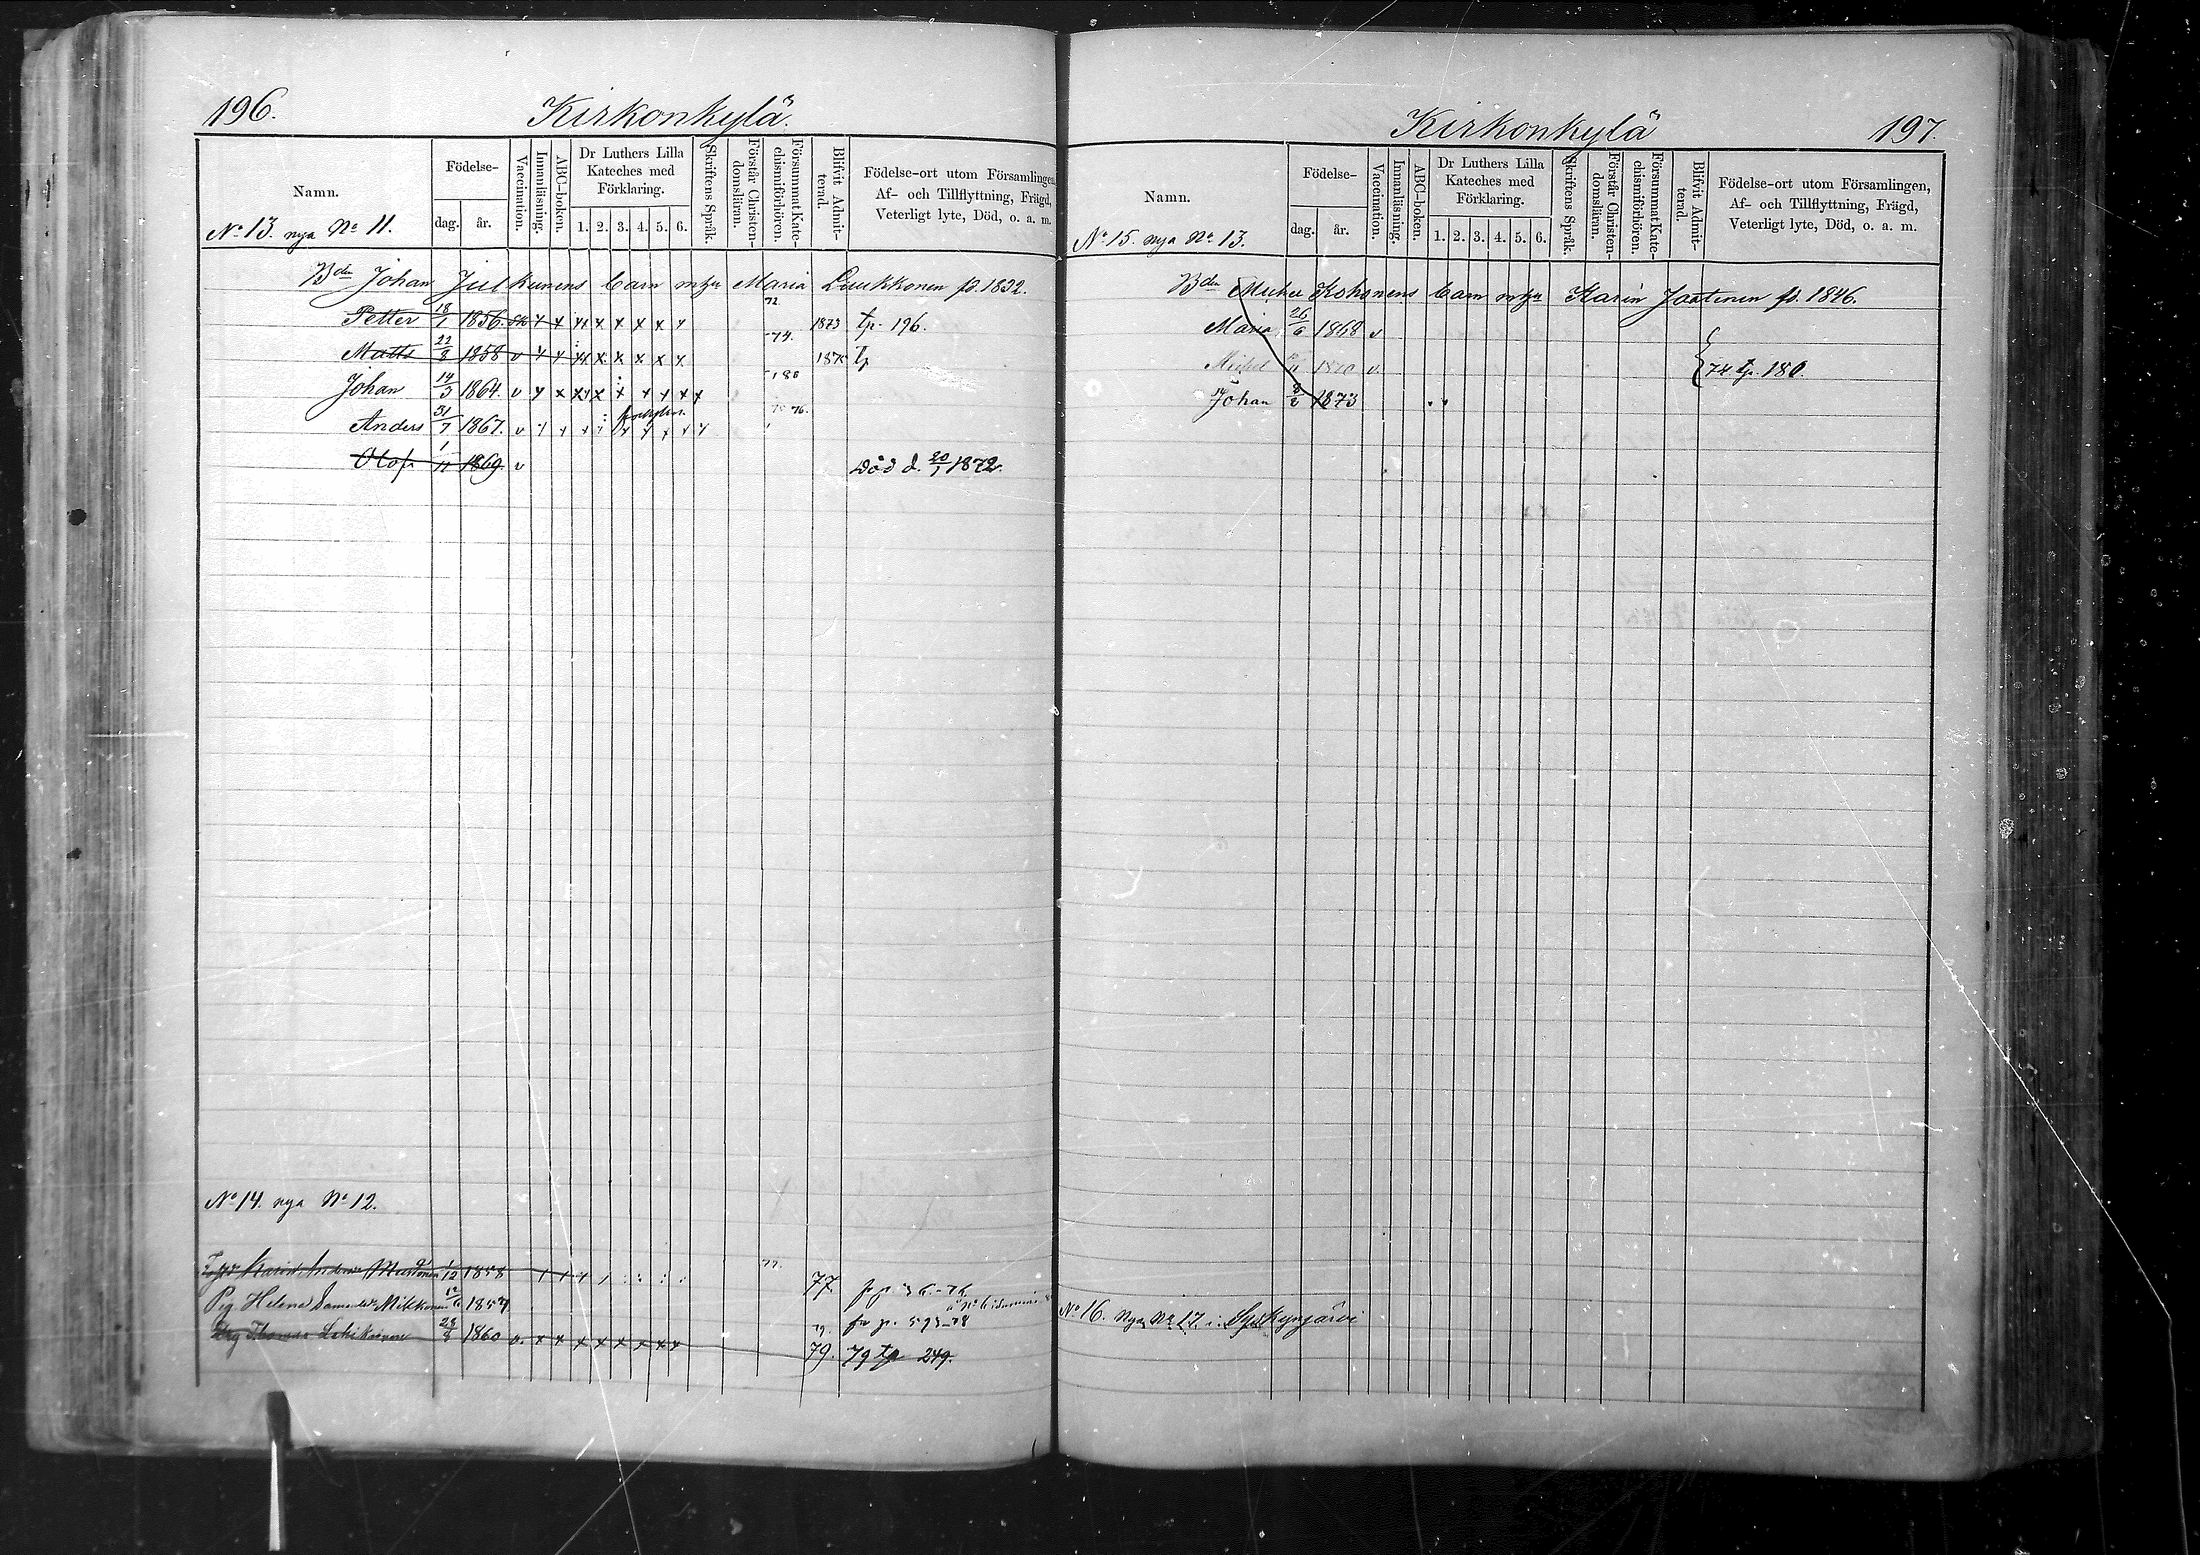 196.
Kirkonkylä.
Namn.
Födelse-
dag.
år.
Vaccination.
Innanläsning.
ABC-boken.
Dr Luthers Lilla
Kateches med
Förklaring.
1. 2. 3. 4. 5. 6.
Skriftens Språk.
Förstår Christen-
domsläran.
Försummat Kate-
chismiförhören.
Blifvit Admit-
terad.
Födelse-ort utom Församlingen,
Af- och Tillflyttning, Frägd,
Veterligt lyte, Död, o. a. m.
No 13. nya No 11.
Bden Johan Julkunens barn m Maria Luukkonen f. 1832.
Petter 18/1 1856. 72 1873 tp. 196.
Matts 22/8 1858 v 74. 1875 tp
Johan 14/3 1864. v
Anders 31/7 1867. v 76.
Olof 1/11 1869 v Död d. 20/1 1872.
No 14. nya No 12.
Karin Anders Mustonen 1/12 1858 77. 77.
Pig Helena Mikkonen 1857
Drg Thomas 28/8 1860 v. 79. 79 tp 249.
Kirkonkylä
197.
Namn.
Födelse-
dag.
år.
Vaccination.
Innanläsning.
ABC-boken.
Dr Luthers Lilla
Kateches med
Förklaring.
1. 2. 3. 4. 5. 6.
Skriftens Språk.
Förstår Christen-
domsläran.
Försummat Kate-
chismiförhören.
Blifvit Admit-
terad.
Födelse-ort utom Församlingen,
Af- och Tillflyttning, Frägd,
Veterligt lyte, Död, o. a. m.
No 15. nya No 13.
Bden Kokonens barn Karin f. 1846.
Maria 26/6 1868 v
Michel 1870 v 74 tp. 180.
Johan 8/2 1873
No 16. Nya No 17. i Syskynjärvi